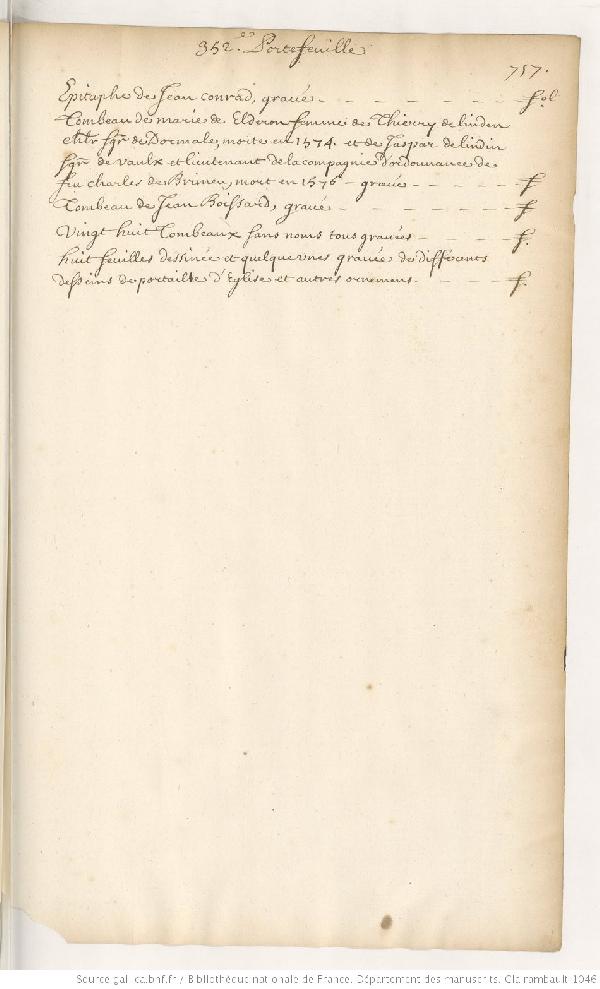 352.es Portefeuille
757.
Epitaphe de Jean Conrad, gravée - - - - - - fol
Tombeau de marie de Elderen femme de Thierry de linden
chlr sgr de Dormale, morte en 1574. et de Jaspar de linden
sgr de vaulx et lieutenant de la compagnie d'ordonnance de
feu charles de Brimeu, mort en 1576 - gravés - - - - - f
Tombeau de Jean Boissard, gravé - - - - - - f
Vingt huit Tombeaux sans noms tous gravées - - - - - f.
huit feuilles dessinée et quelques unes gravée de differents
desseins de portaille d'Eglise et autres ornemens - - - - f.
Source gallica.bnf.fr / Bibliothèque nationale de France. Département des manuscrits. Clairambault 1046